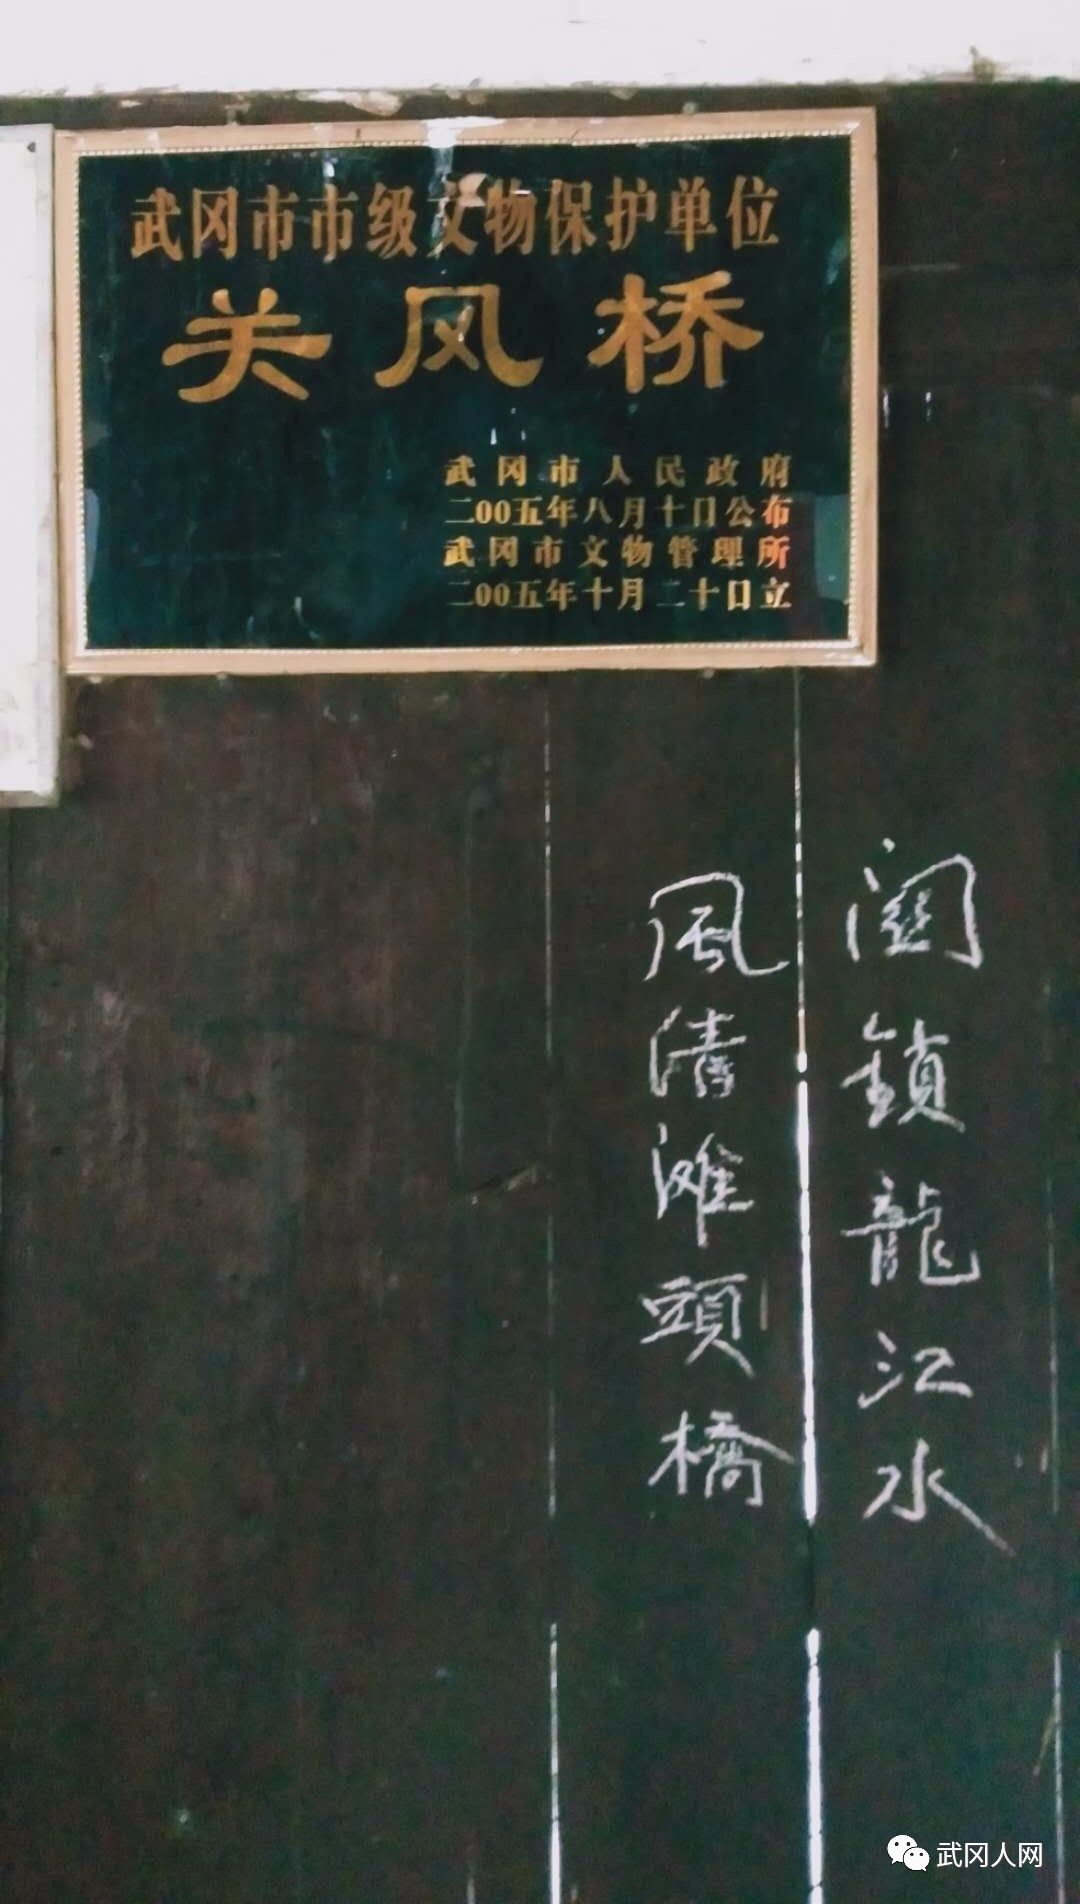 武冈市市级文物保护单位
关风桥
武冈市人民政府
二00五年八月十日公布
武冈市文物管理所
二00五年十月二十日立
關鎖龍江水
風清滩頭橋
武冈人网